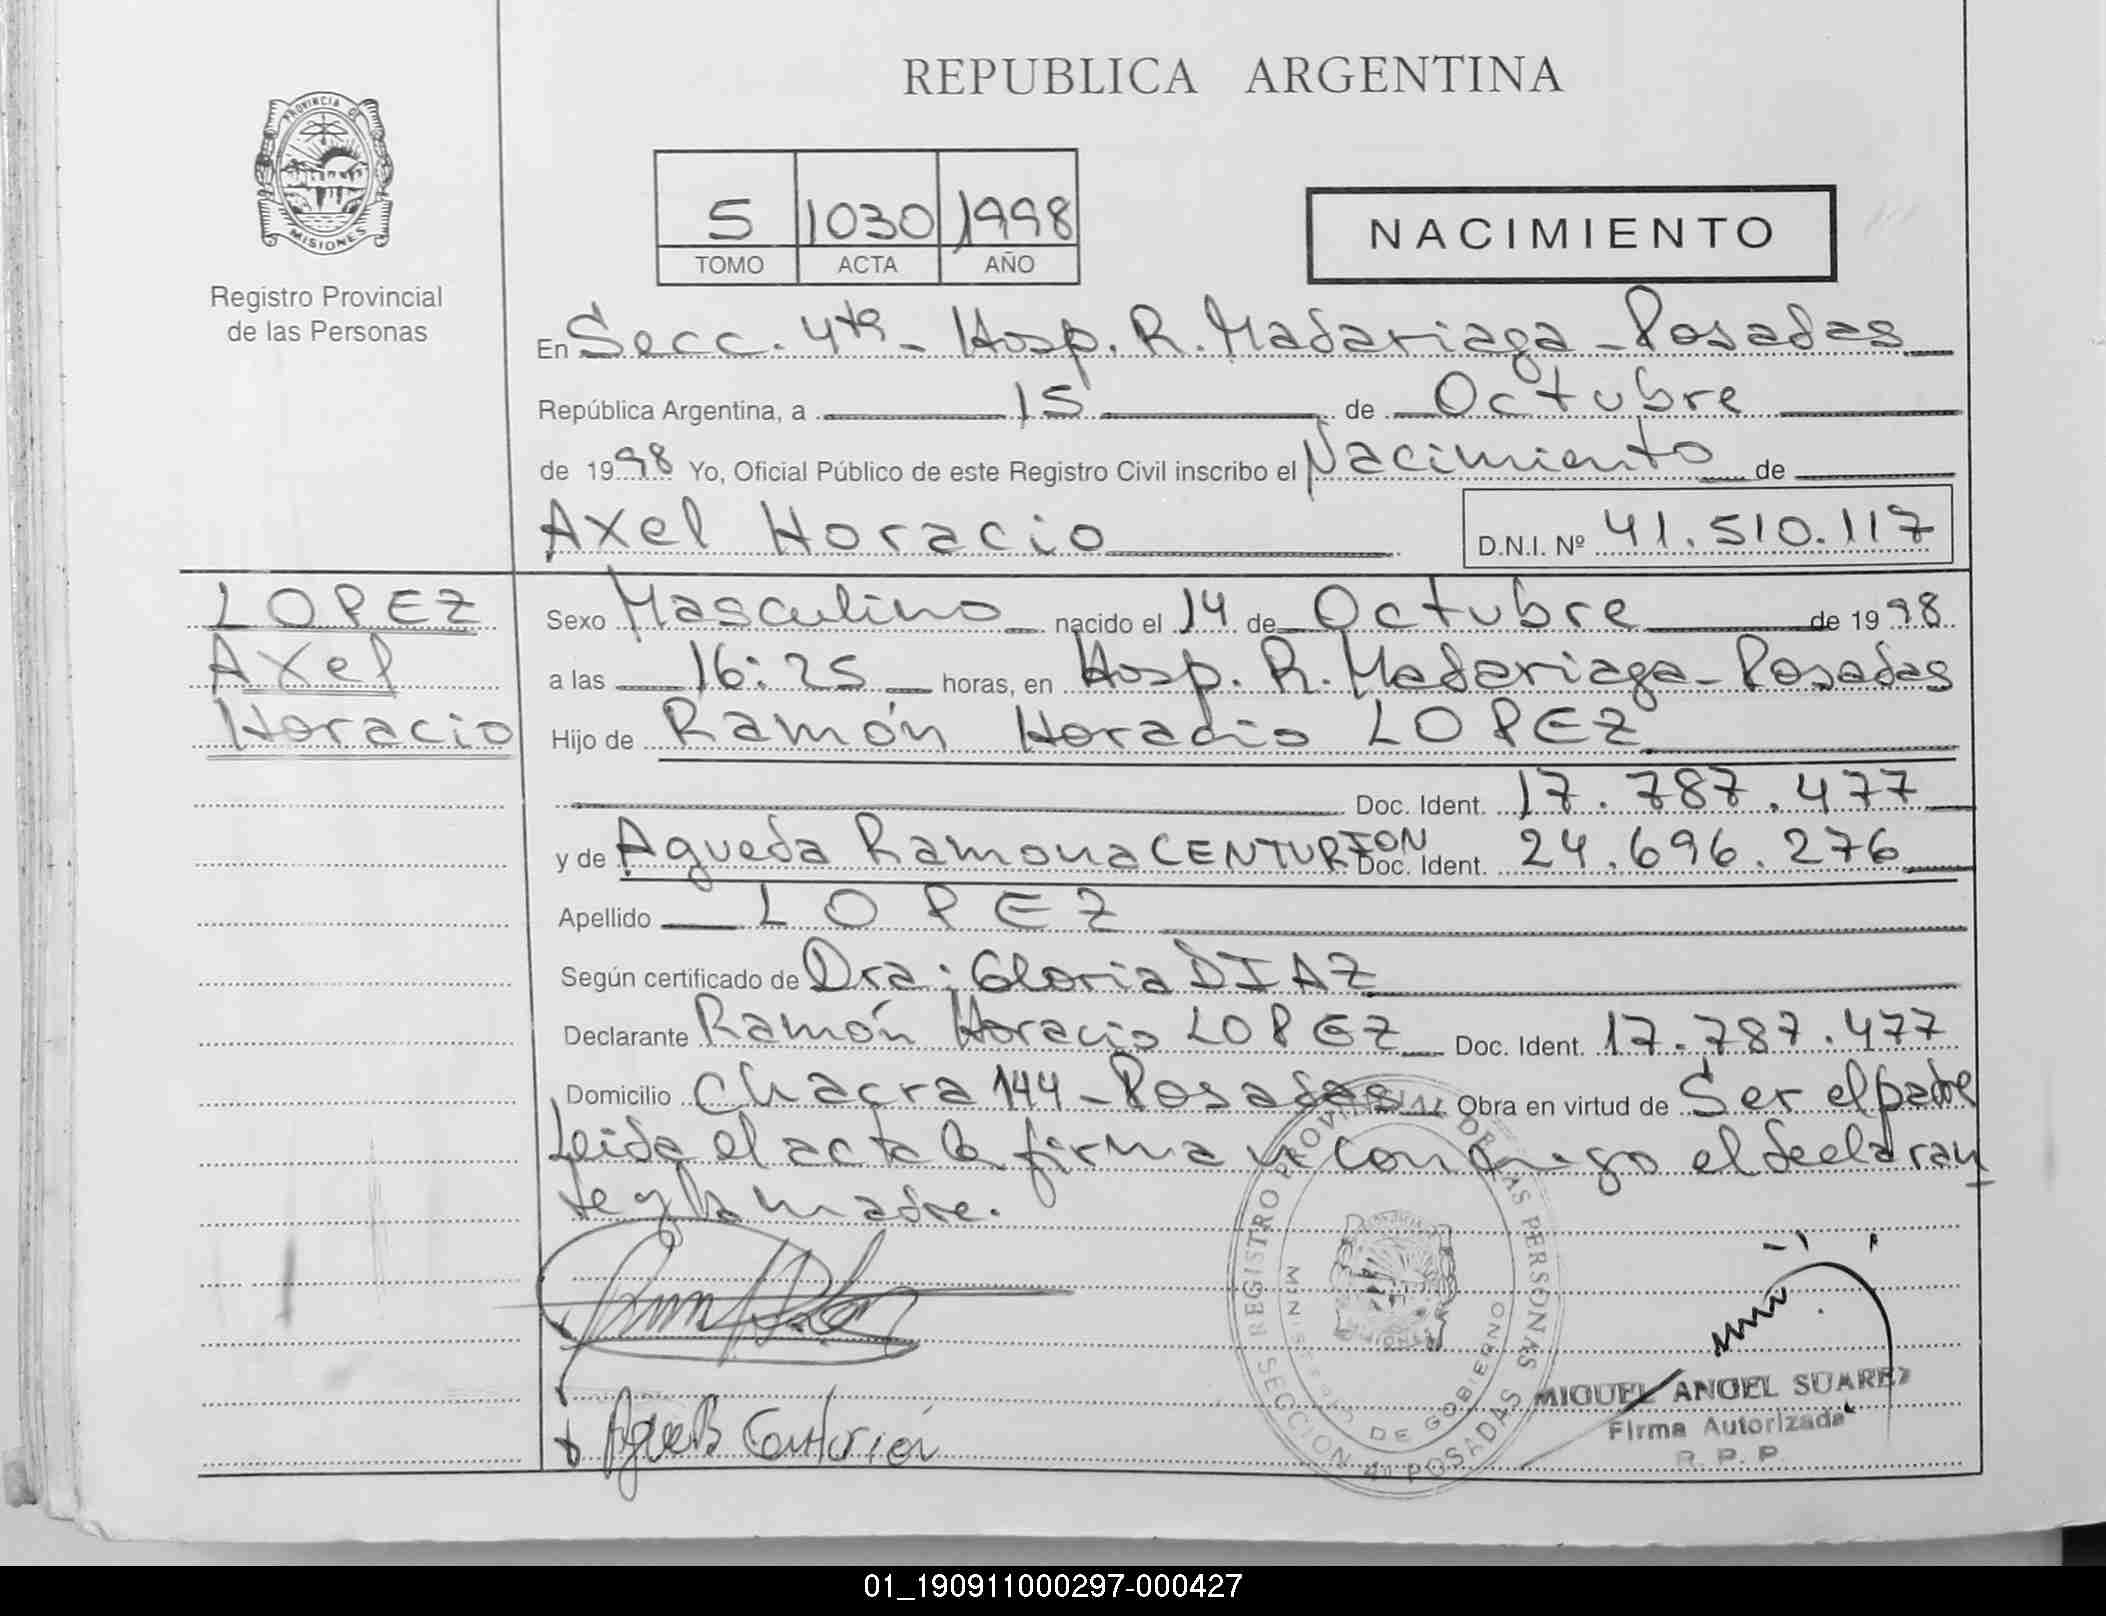 REPUBLICA ARGENTINA
PROVINCIA DE
MISIONES
Registro Provincial
de las Personas
5 1030 1998
TOMO ACTA AÑO
NACIMIENTO
En Secc. 4ta - Hosp. R. Madariaga - Posadas
República Argentina, a 15 de Octubre
de 1998 Yo, Oficial Público de este Registro Civil inscribo el Nacimiento de
Axel Horacio D.N.I. Nº 41.510.117
LOPEZ
Axel
Horacio
Sexo Masculino nacido el 14 de Octubre de 1998
a las 16:25 horas, en Hosp. R. Madariaga - Posadas
Hijo de Ramón Horacio LOPEZ
Doc. Ident. 17.787.477
y de Agueda Ramona CENTURION Doc. Ident. 24.696.276
Apellido LOPEZ
Según certificado de Dra: Gloria DIAZ
Declarante Ramón Horacio LOPEZ Doc. Ident. 17.787.477
Domicilio Chacra 144 - Posadas Obra en virtud de Ser el padre
Leida el acta la firma conmigo el declaran
te y la madre.
REGISTRO PROVINCIAL DE LAS PERSONAS
MINISTERIO DE GOBIERNO
SECCION 4ª POSADAS
MIGUEL ANGEL SUAREZ
Firma Autorizada
R. P. P.
Agueda Centurión
01_190911000297-000427